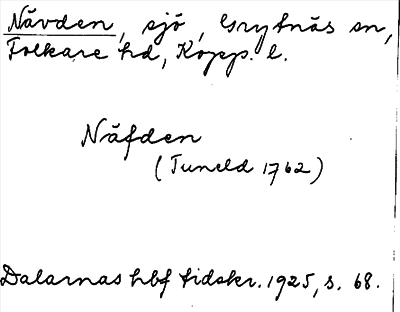 Nävden, sjö, Grytnäs sn,
Folkare hd, Kopp. l.
Näfden
(Tuneld 1762)
Dalarnas hbf tidskr. 1925, s. 68.